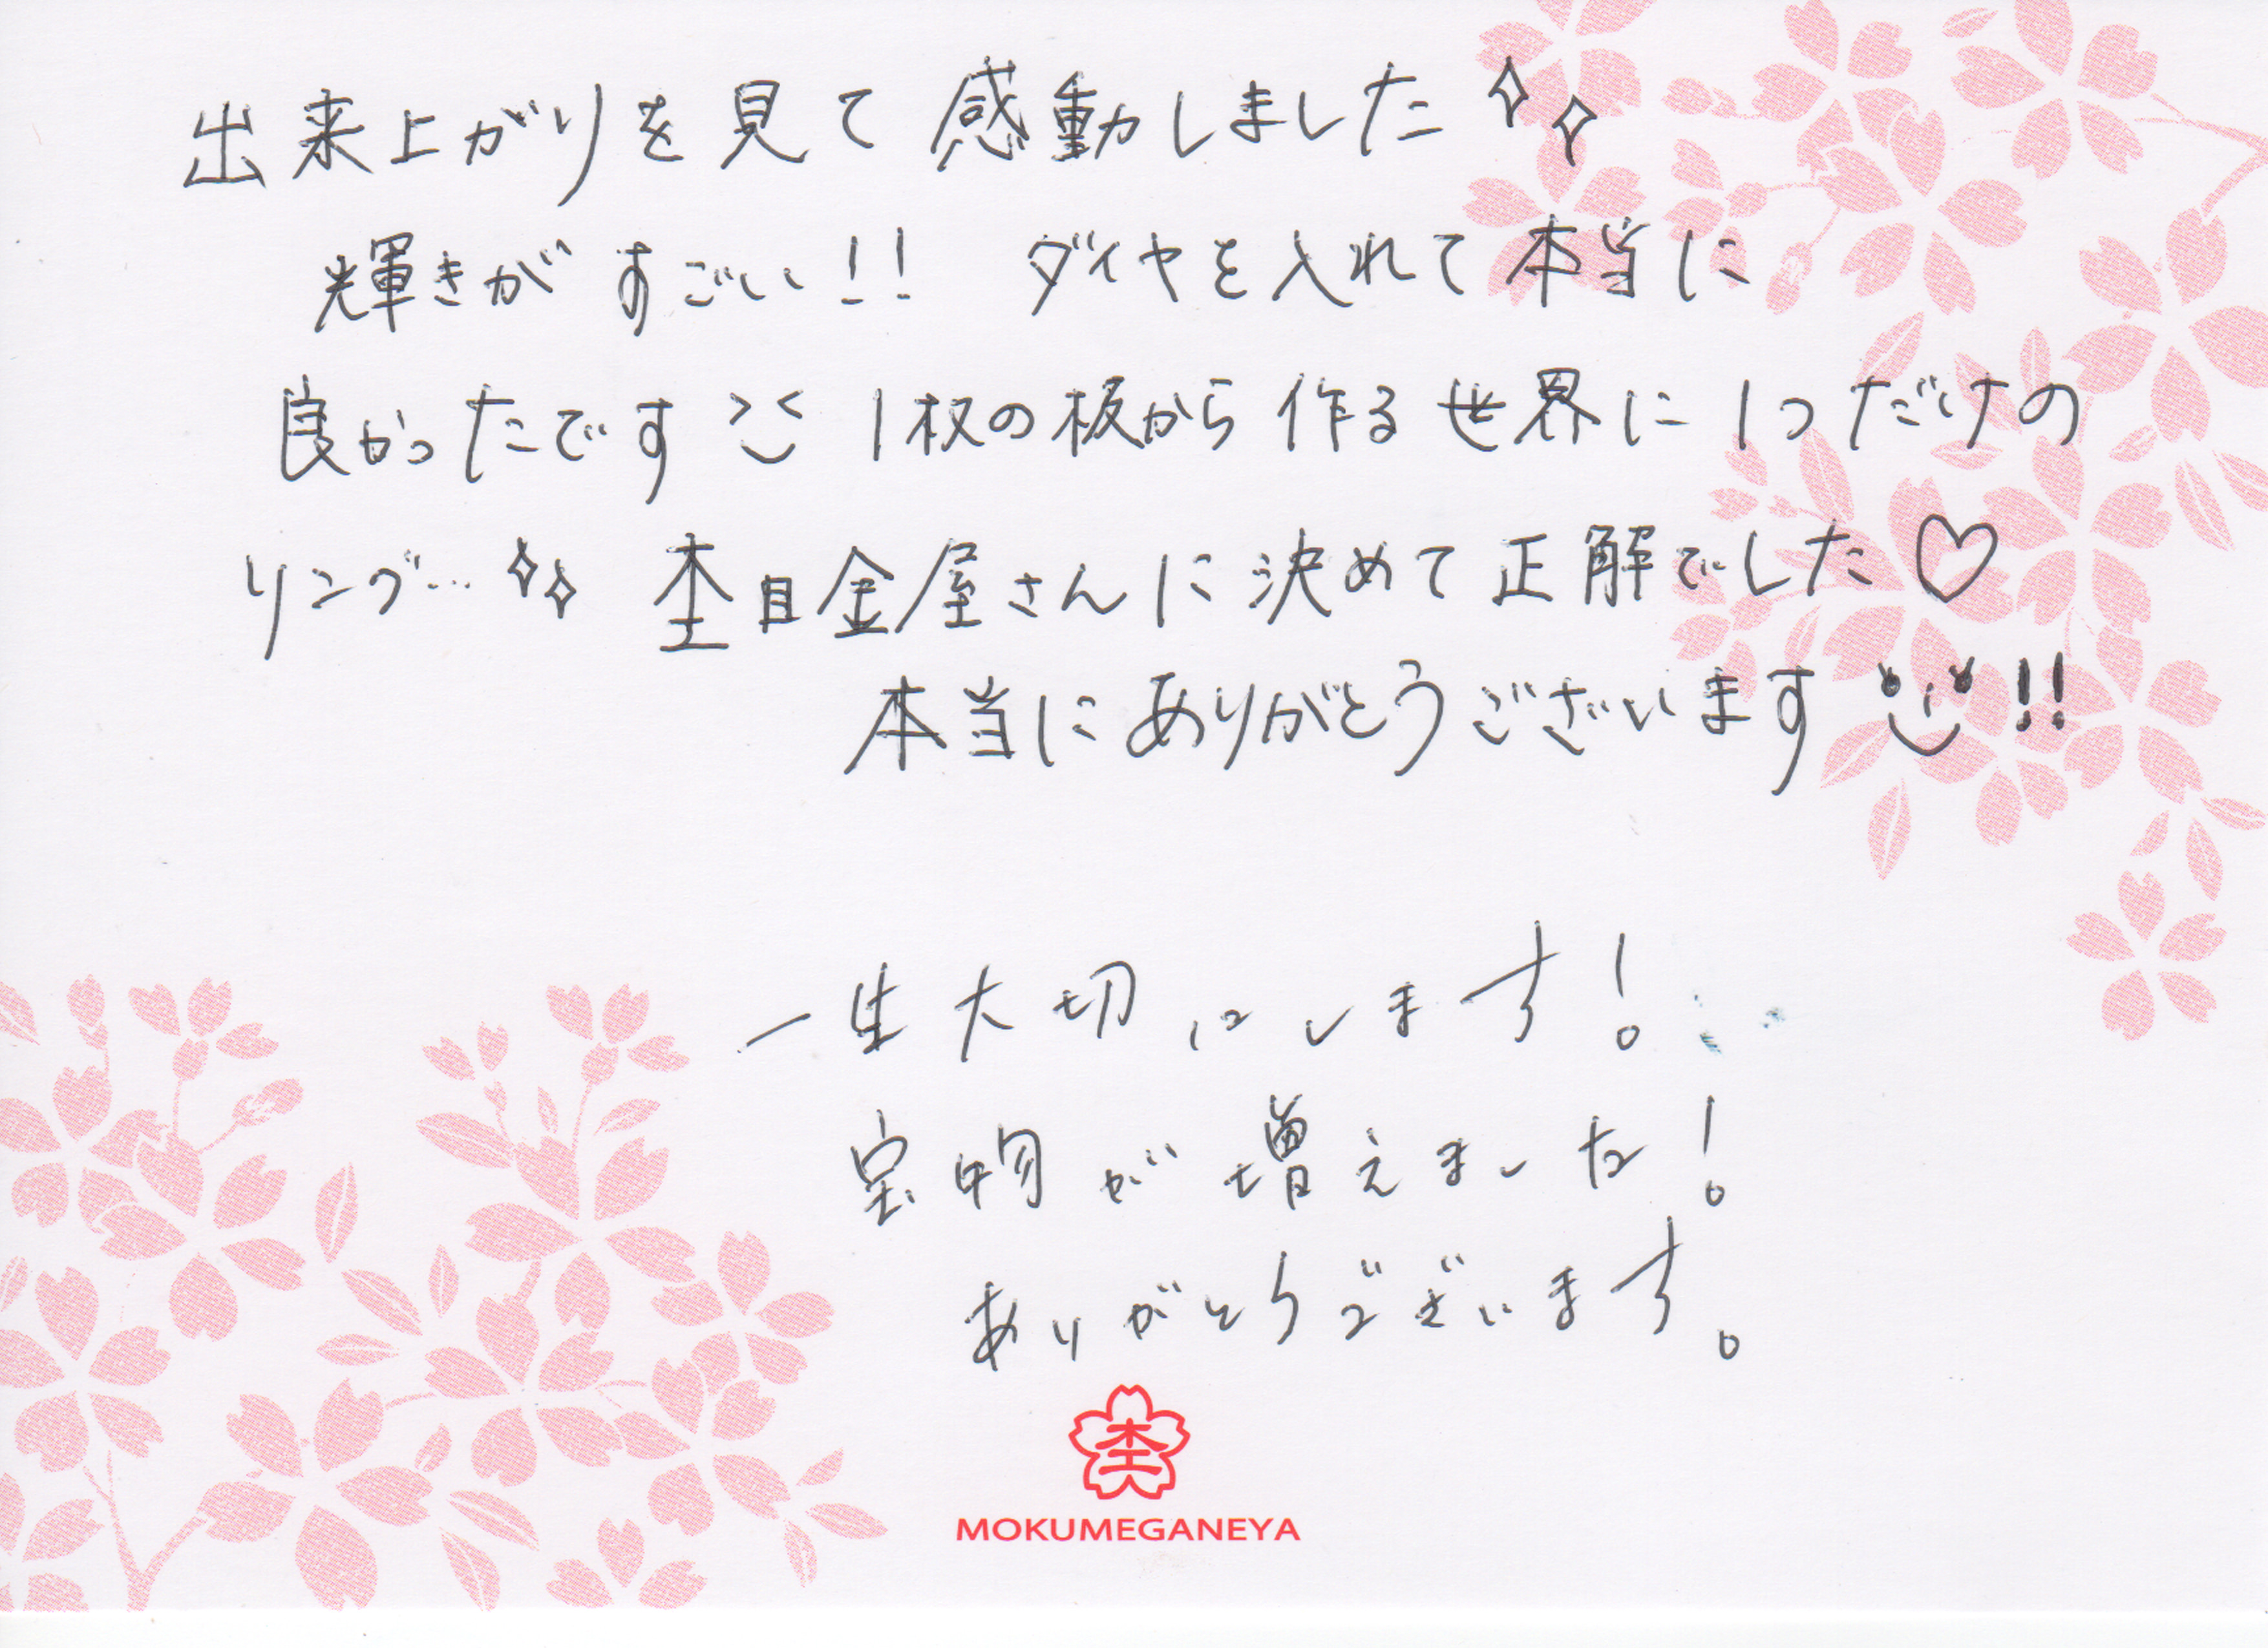 出来上がりを見て感動しました
輝きがすごい!! ダイヤを入れて本当に
良かったです 1枚の板から作る世界に1つだけの
リング… 杢目金屋さんに決めて正解でした♡
本当にありがとうございます!!
一生大切にします!
宝物が増えました!
ありがとうございます。
杢
MOKUMEGANEYA